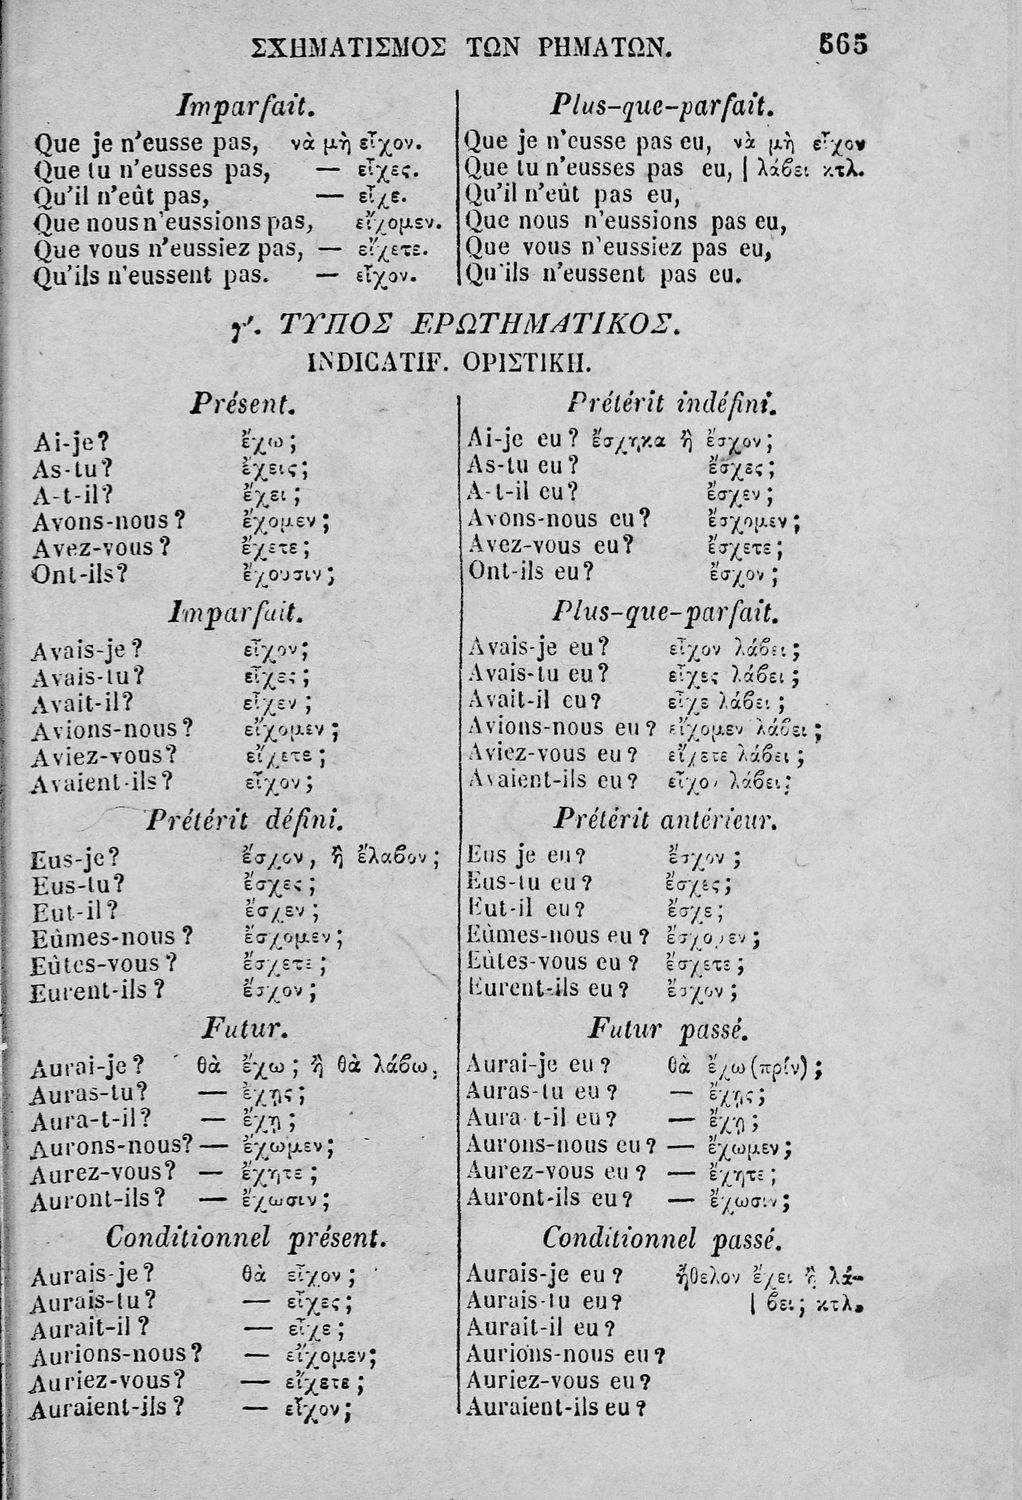 ΣΧΗΜΑΤΙΣΜΟΣ ΤΩΝ ΡΗΜΑΤΩΝ. 565
Imparfait.
Que je n'eusse pas, νὰ μὴ εἶχον.
Que tu n'eusses pas, — εἶχες.
Qu'il n'eût pas, — εἶχε.
Que nous n'eussions pas, εἴχομεν.
Que vous n'eussiez pas, — εἴχετε.
Qu'ils n'eussent pas. — εἶχον.
Plus-que-parfait.
Que je n'eusse pas eu, νὰ μὴ εἶχον
Que tu n'eusses pas eu, | λάϐει κτλ.
Qu'il n'eût pas eu,
Que nous n'eussions pas eu,
Que vous n'eussiez pas eu,
Qu'ils n'eussent pas eu.
γ'. ΤΥΠΟΣ ΕΡΩΤΗΜΑΤΙΚΟΣ.
INDICATIF. ΟΡΙΣΤΙΚΗ.
Présent.
Ai-je? ἔχω;
As-tu? ἔχεις;
A-t-il? ἔχει;
Avons-nous? ἔχομεν;
Avez-vous? ἔχετε;
Ont-ils? ἔχουσιν;
Imparfait.
Avais-je? εἶχον;
Avais-tu? εἶχες;
Avait-il? εἶχεν;
Avions-nous? εἴχομεν;
Aviez-vous? εἴχετε;
Avaient-ils? εἶχον;
Prétérit défini.
Eus-je? ἔσχον, ἢ ἔλαϐον;
Eus-tu? ἔσχες;
Eut-il? ἔσχεν;
Eûmes-nous? ἔσχομεν;
Eûtes-vous? ἔσχετε;
Eurent-ils? ἔσχον;
Futur.
Aurai-je? θὰ ἔχω; ἢ θὰ λάϐω;
Auras-tu? — ἔχῃς;
Aura-t-il? — ἔχῃ;
Aurons-nous? — ἔχωμεν;
Aurez-vous? — ἔχητε;
Auront-ils? — ἔχωσιν;
Conditionnel présent.
Aurais-je? θὰ εἶχον;
Aurais-tu? — εἶχες;
Aurait-il? — εἶχε;
Aurions-nous? — εἴχομεν;
Auriez-vous? — εἴχετε;
Auraient-ils? — εἶχον;
Prétérit indéfini.
Ai-je eu? ἔσχηκα ἢ ἔσχον;
As-tu eu? ἔσχες;
A-t-il eu? ἔσχεν;
Avons-nous eu? ἔσχομεν;
Avez-vous eu? ἔσχετε;
Ont-ils eu? ἔσχον;
Plus-que-parfait.
Avais-je eu? εἶχον λάϐει;
Avais-tu eu? εἶχες λάϐει;
Avait-il eu? εἶχε λάϐει;
Avions-nous eu? εἴχομεν λάϐει;
Aviez-vous eu? εἴχετε λάϐει;
Avaient-ils eu? εἶχον λάϐει;
Prétérit antérieur.
Eus je eu? ἔσχον;
Eus-tu eu? ἔσχες;
Eut-il eu? ἔσχε;
Eûmes-nous eu? ἔσχομεν;
Eûtes-vous eu? ἔσχετε;
Eurent-ils eu? ἔσχον;
Futur passé.
Aurai-je eu? θὰ ἔχω (πρίν);
Auras-tu eu? — ἔχῃς;
Aura t-il eu? — ἔχῃ;
Aurons-nous eu? — ἔχωμεν;
Aurez-vous eu? — ἔχητε;
Auront-ils eu? — ἔχωσιν;
Conditionnel passé.
Aurais-je eu? ἤθελον ἔχει ἢ λά-
Aurais-tu eu? | ϐει; κτλ.
Aurait-il eu?
Aurions-nous eu?
Auriez-vous eu?
Auraient-ils eu?